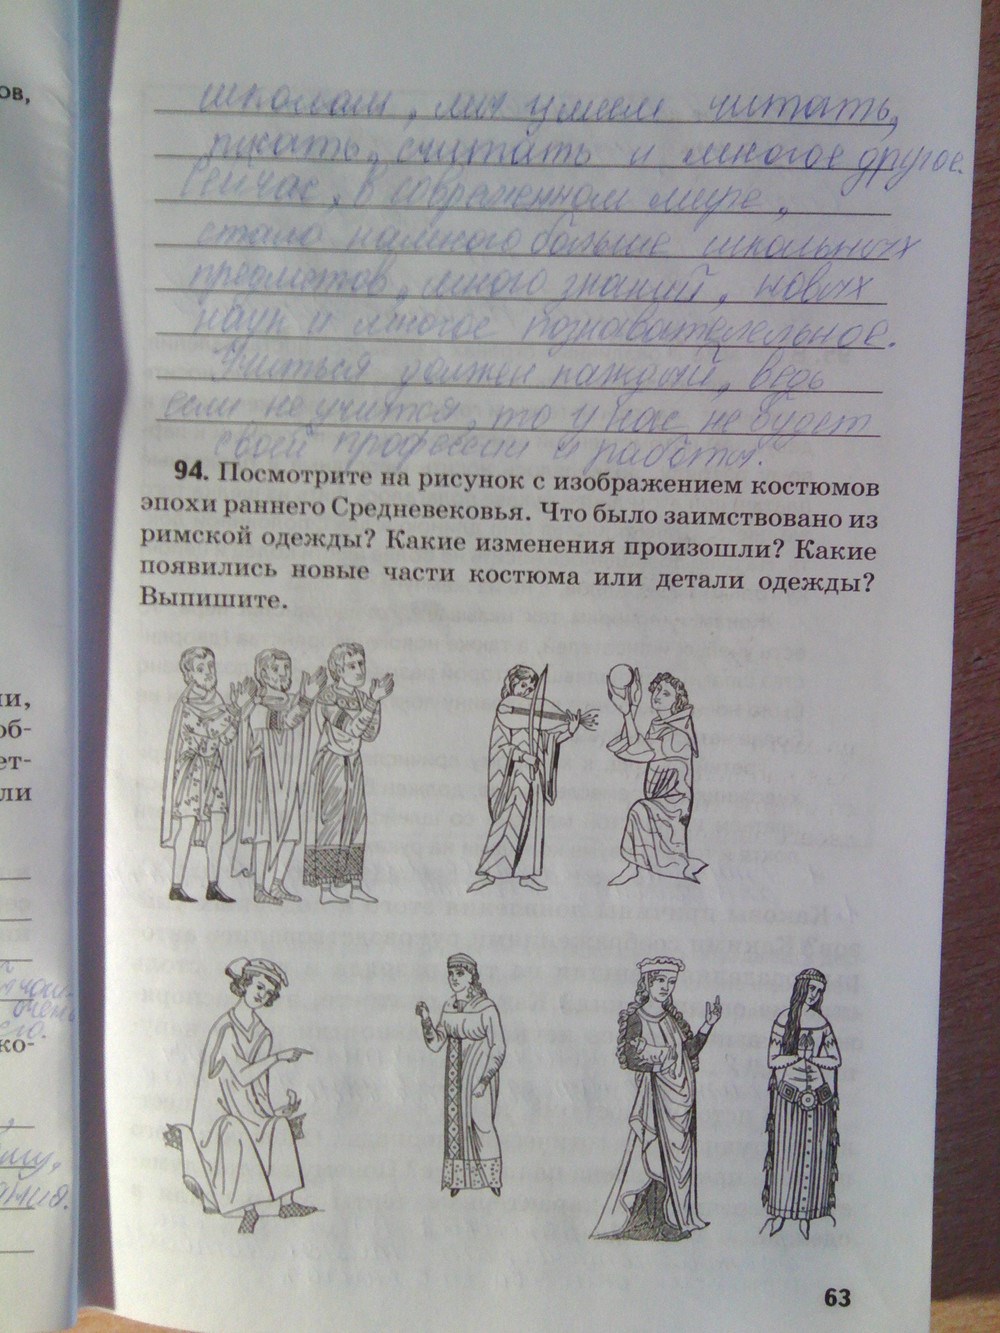 ов,
школам, мы умеем читать,
писать, считать и многое другое.
Сейчас, в современном мире,
стало намного больше школьных
предметов, много знаний, новых
наук и многое познавательное.
Учиться должен каждый, ведь
если не учится, то у нас не будет
своей професеии и работы.
94. Посмотрите на рисунок с изображением костюмов
эпохи раннего Средневековья. Что было заимствовано из
римской одежды? Какие изменения произошли? Какие
появились новые части костюма или детали одежды?
Выпишите.
ли,
об-
ет-
ли
очень
его.
ко-
му,
63